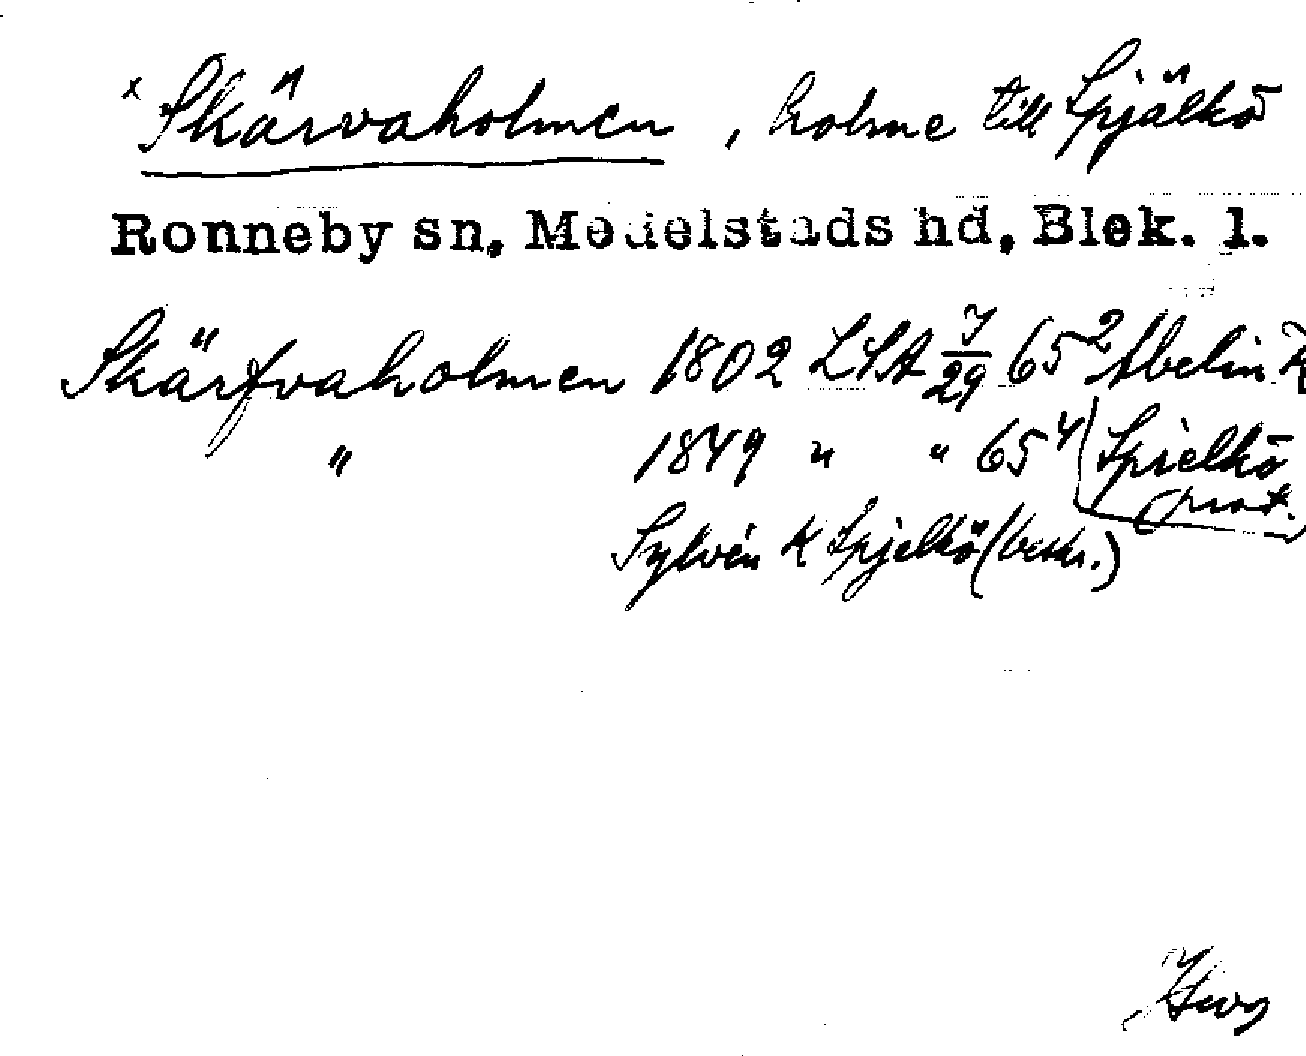 x Skärvaholmen, holme till Spjälkö
Ronneby sn, Medelstads hd, Blek. l.
Skärfvaholmen 1802 LSA 7/29 65² Abelin K
" 1849 " " 65⁴ Spielkö
prot.
Sylvén K Spjelkö (beskr.)